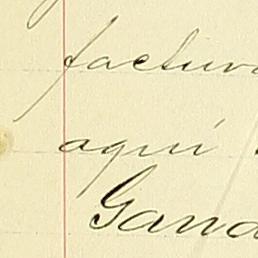 factura
aquí
Gana